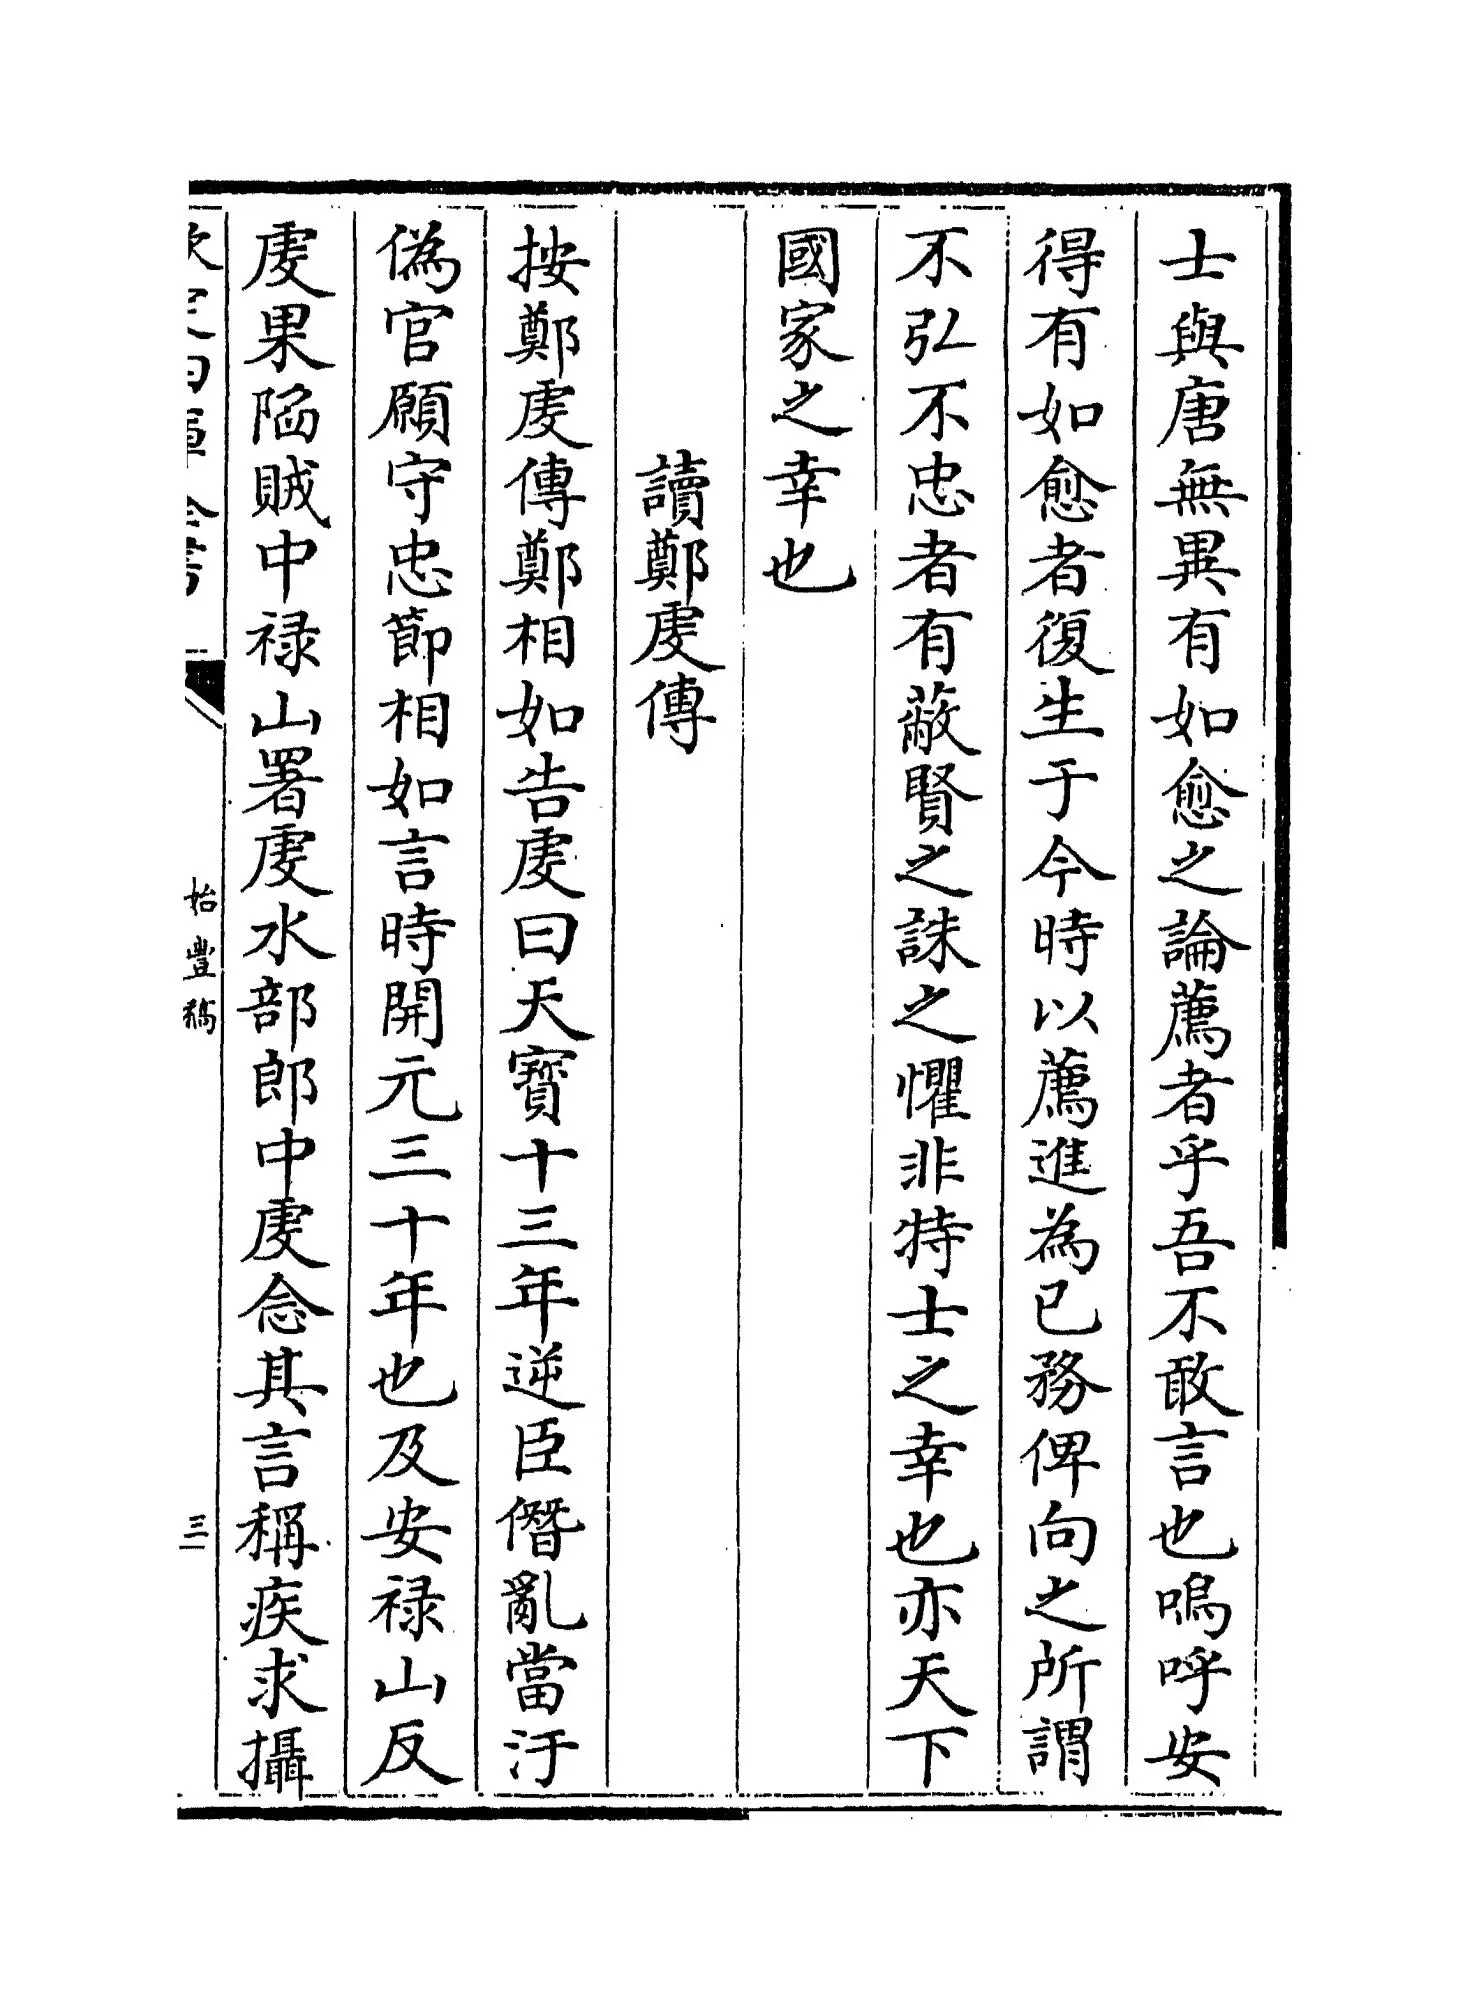 士與唐無異有如愈之論薦者乎吾不敢言也嗚呼安
得有如愈者復生于今時以薦進為已務俾向之所謂
不弘不忠者有蔽賢之誅之懼非特士之幸也亦天下
國家之幸也
讀鄭䖍傳
按鄭䖍傳鄭相如告䖍曰天寳十三年逆臣僭亂當汙
偽官願守忠節相如言時開元三十年也及安禄山反
䖍果陷賊中禄山署䖍水部郎中䖍念其言稱疾求攝
欽定四庫全書
始豐稿
三